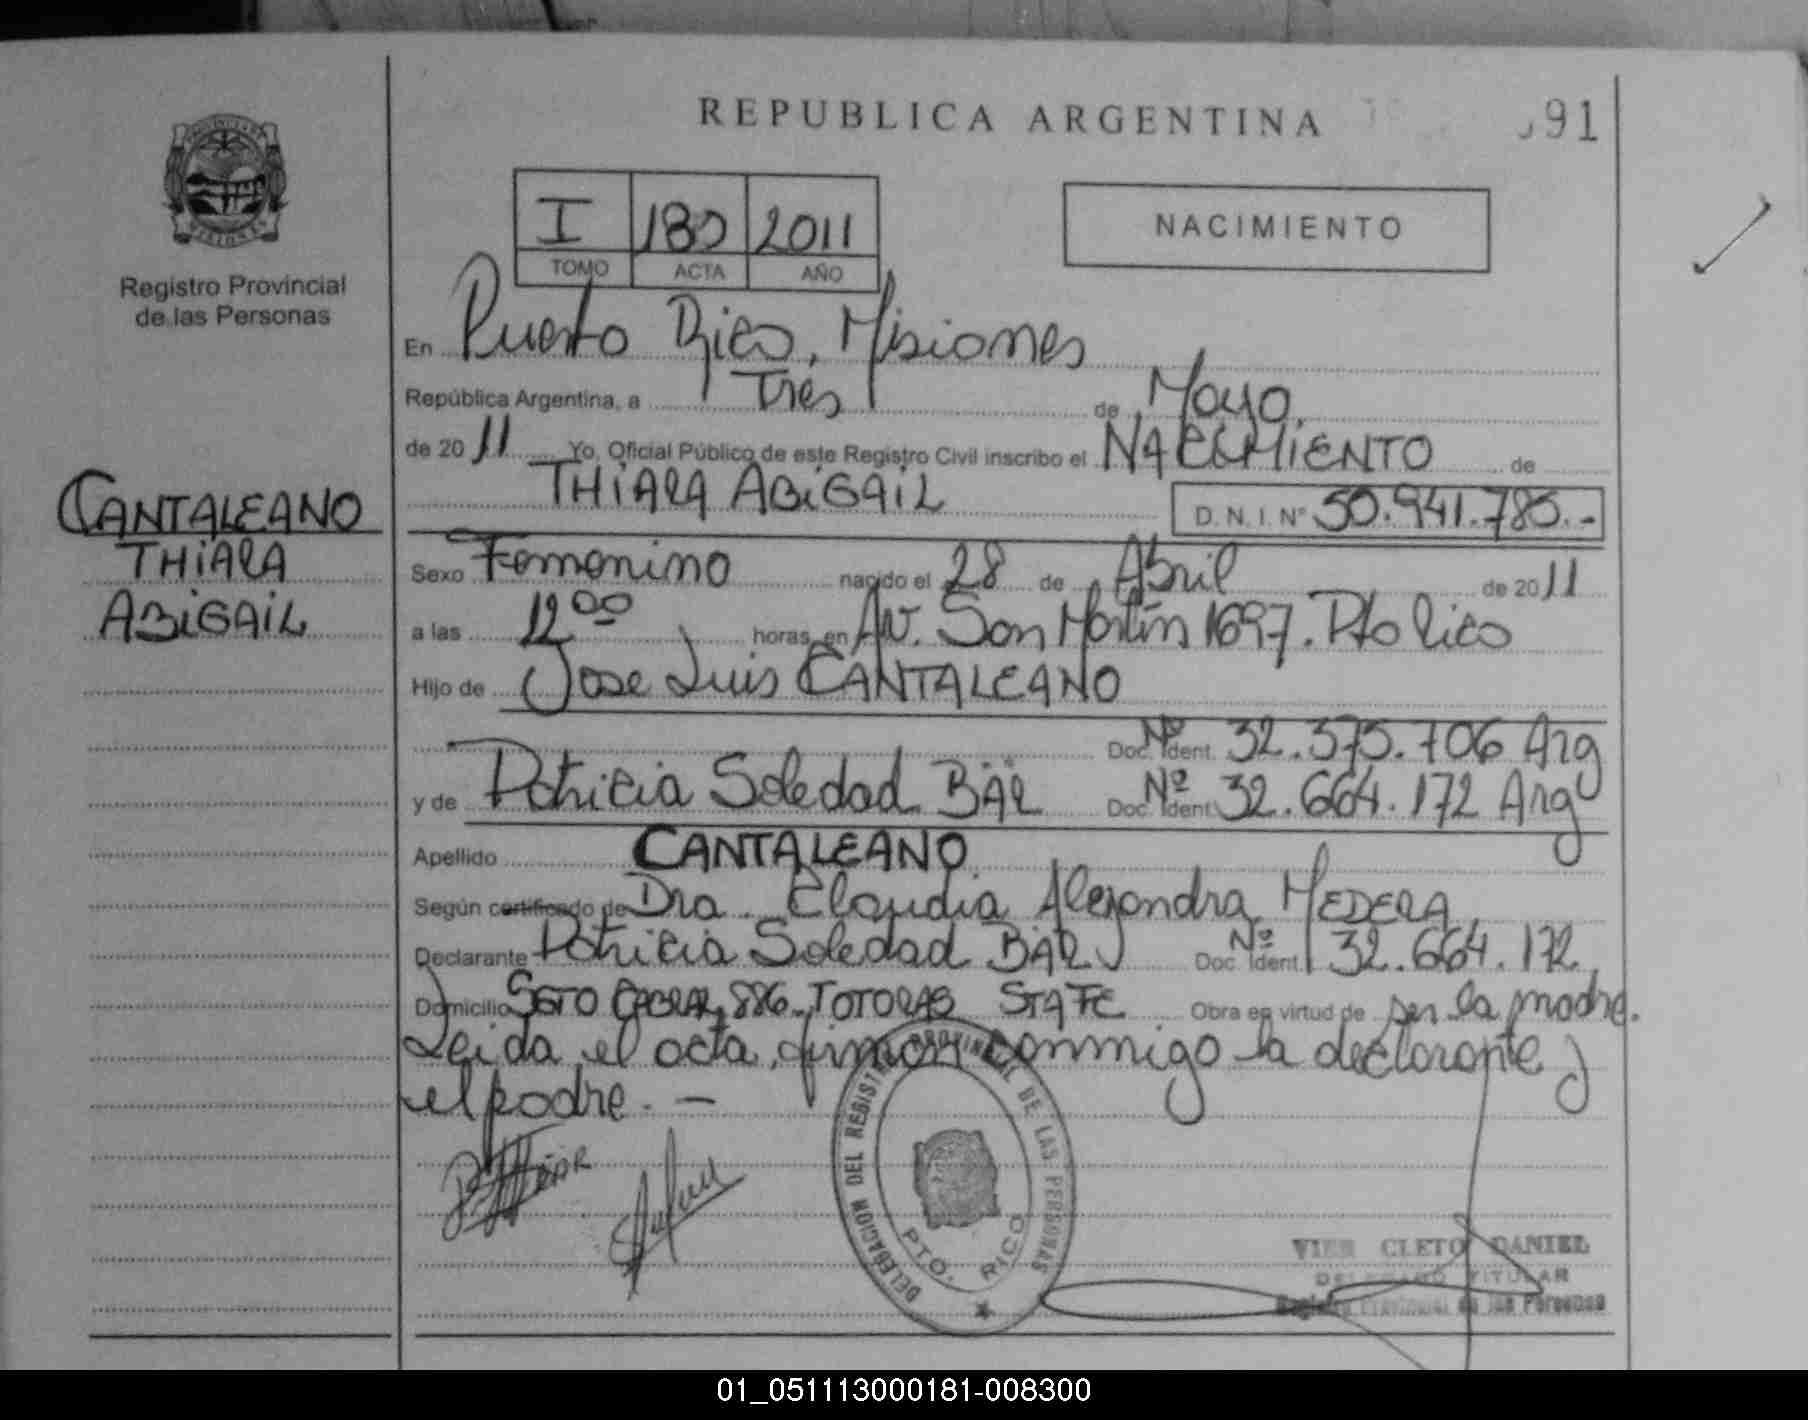 REPUBLICA ARGENTINA
91
I 180 2011
TOMO ACTA AÑO
NACIMIENTO
Registro Provincial
de las Personas
En Puerto Rico, Misiones
República Argentina, a Tres de Mayo
de 2011 Yo, Oficial Público de este Registro Civil inscribo el NACIMIENTO de
THIARA ABIGAIL D.N.I. Nº 50.941.785.-
CANTALEANO
THIARA
ABIGAIL
Sexo Femenino nacido el 28 de Abril de 2011
a las 12 00 horas, en Av. San Martín 1697. Pto Rico
Hijo de Jose Luis CANTALEANO
Doc. Ident. Nº 32.375.706 Arg
y de Patricia Soledad BÄR Doc. Ident. Nº 32.664.172 Arg
Apellido CANTALEANO
Según certificado de Dra. Claudia Alejandra MEDERA
Declarante Patricia Soledad BÄR Doc. Ident. Nº 32.664.172
Domicilio SGTO CABRAL 886. TOTORAS STA FE Obra en virtud de ser la madre.
Leida el acta, firman conmigo la declarante y
el padre. -
DELEGACION DEL REGISTRO PROVINCIAL DE LAS PERSONAS
PTO. RICO
VIER CLETO DANIEL
DELEGADO TITULAR
Registro Provincial de las Personas
01_051113000181-008300